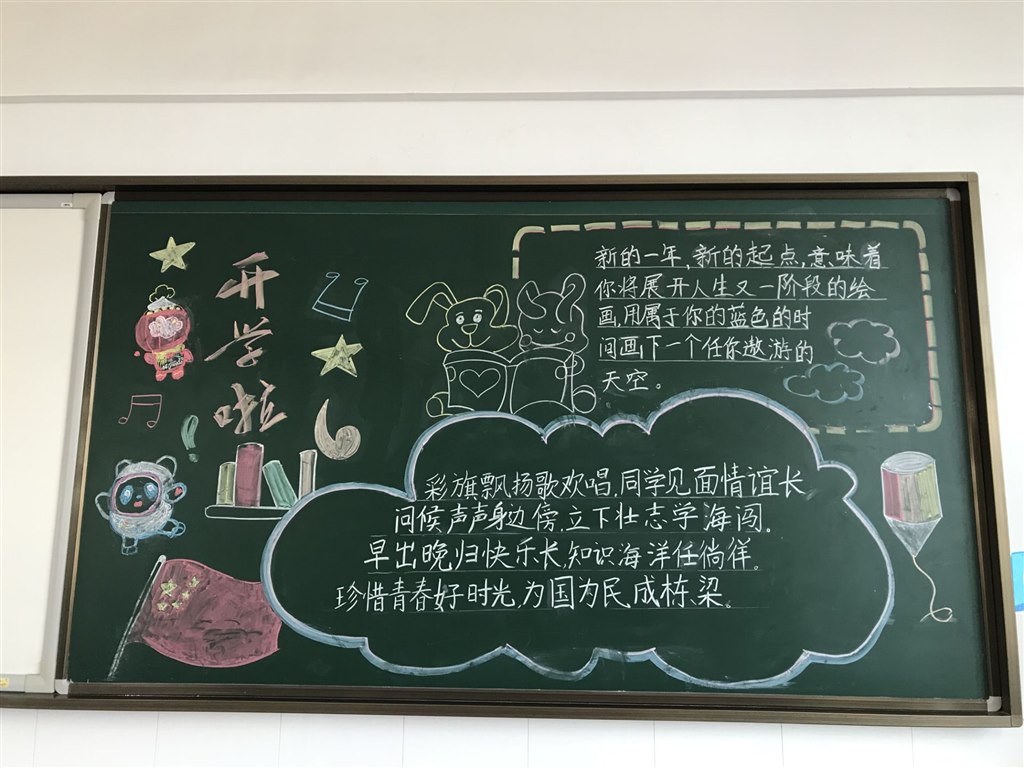 开
学
啦
新的一年,新的起点,意味着
你将展开人生又一阶段的绘
画,用属于你的蓝色的时
间画下一个任你遨游的
天空。
彩旗飘扬歌欢唱,同学见面情谊长
问候声声身边傍,立下壮志学海闯。
早出晚归快乐长,知识海洋任徜徉。
珍惜青春好时光,为国为民成栋、梁。